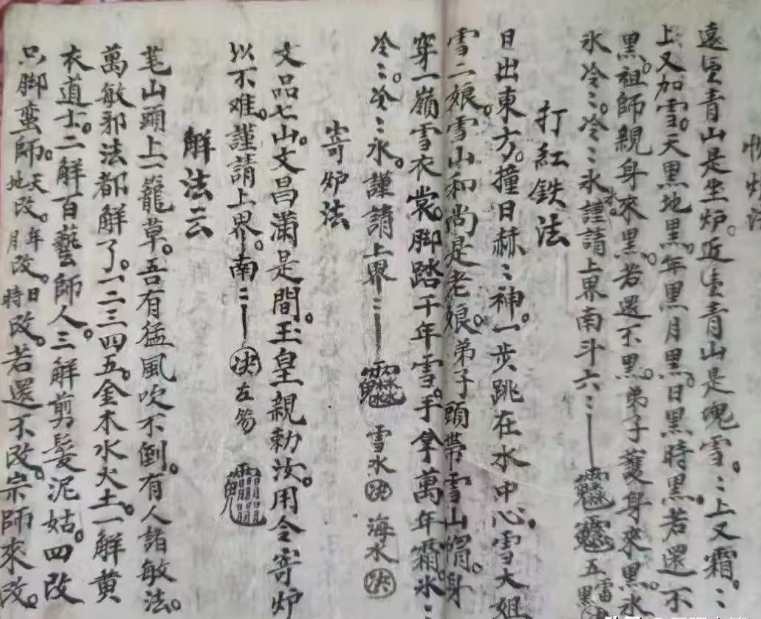 遠望青山是坐炉。近望青山是塊雪。〻上又霜。〻
上又加雪。天黑地黑。年黑月黑。日黑時黑。若還不
黑。祖師親身來黑。若還不黑。弟子護身來黑。水
氷冷〻。冷〻氷。謹請上界南斗六〻
打紅鉄法
日出東方。撞日赫〻神。一步跳在水中心。雪大姐
雪二娘。雪山和尚是老娘。弟子頭帶雪山帽。身
穿一嶺雪衣裳。脚踏千年雪。手拿萬年霜。氷〻
冷〻。冷〻氷。謹請上界〻 雪水 决 海水 决
寄炉法
文品七山。文昌滿是間。玉皇親勅汝。用令寄炉
以不难。謹請上界。南〻 决 左
解法云
茅山頭上一籠草。吾有猛風吹不倒。有人諸敏法。
萬敏邪法都解了。一二三四五。金木水火土。一解黄
衣道士。二解百藝師人。三解剪髪泥姑。四改
只脚蛮師。天改。地改。年改。月改。日改。時改。若還不改。宗師來改。